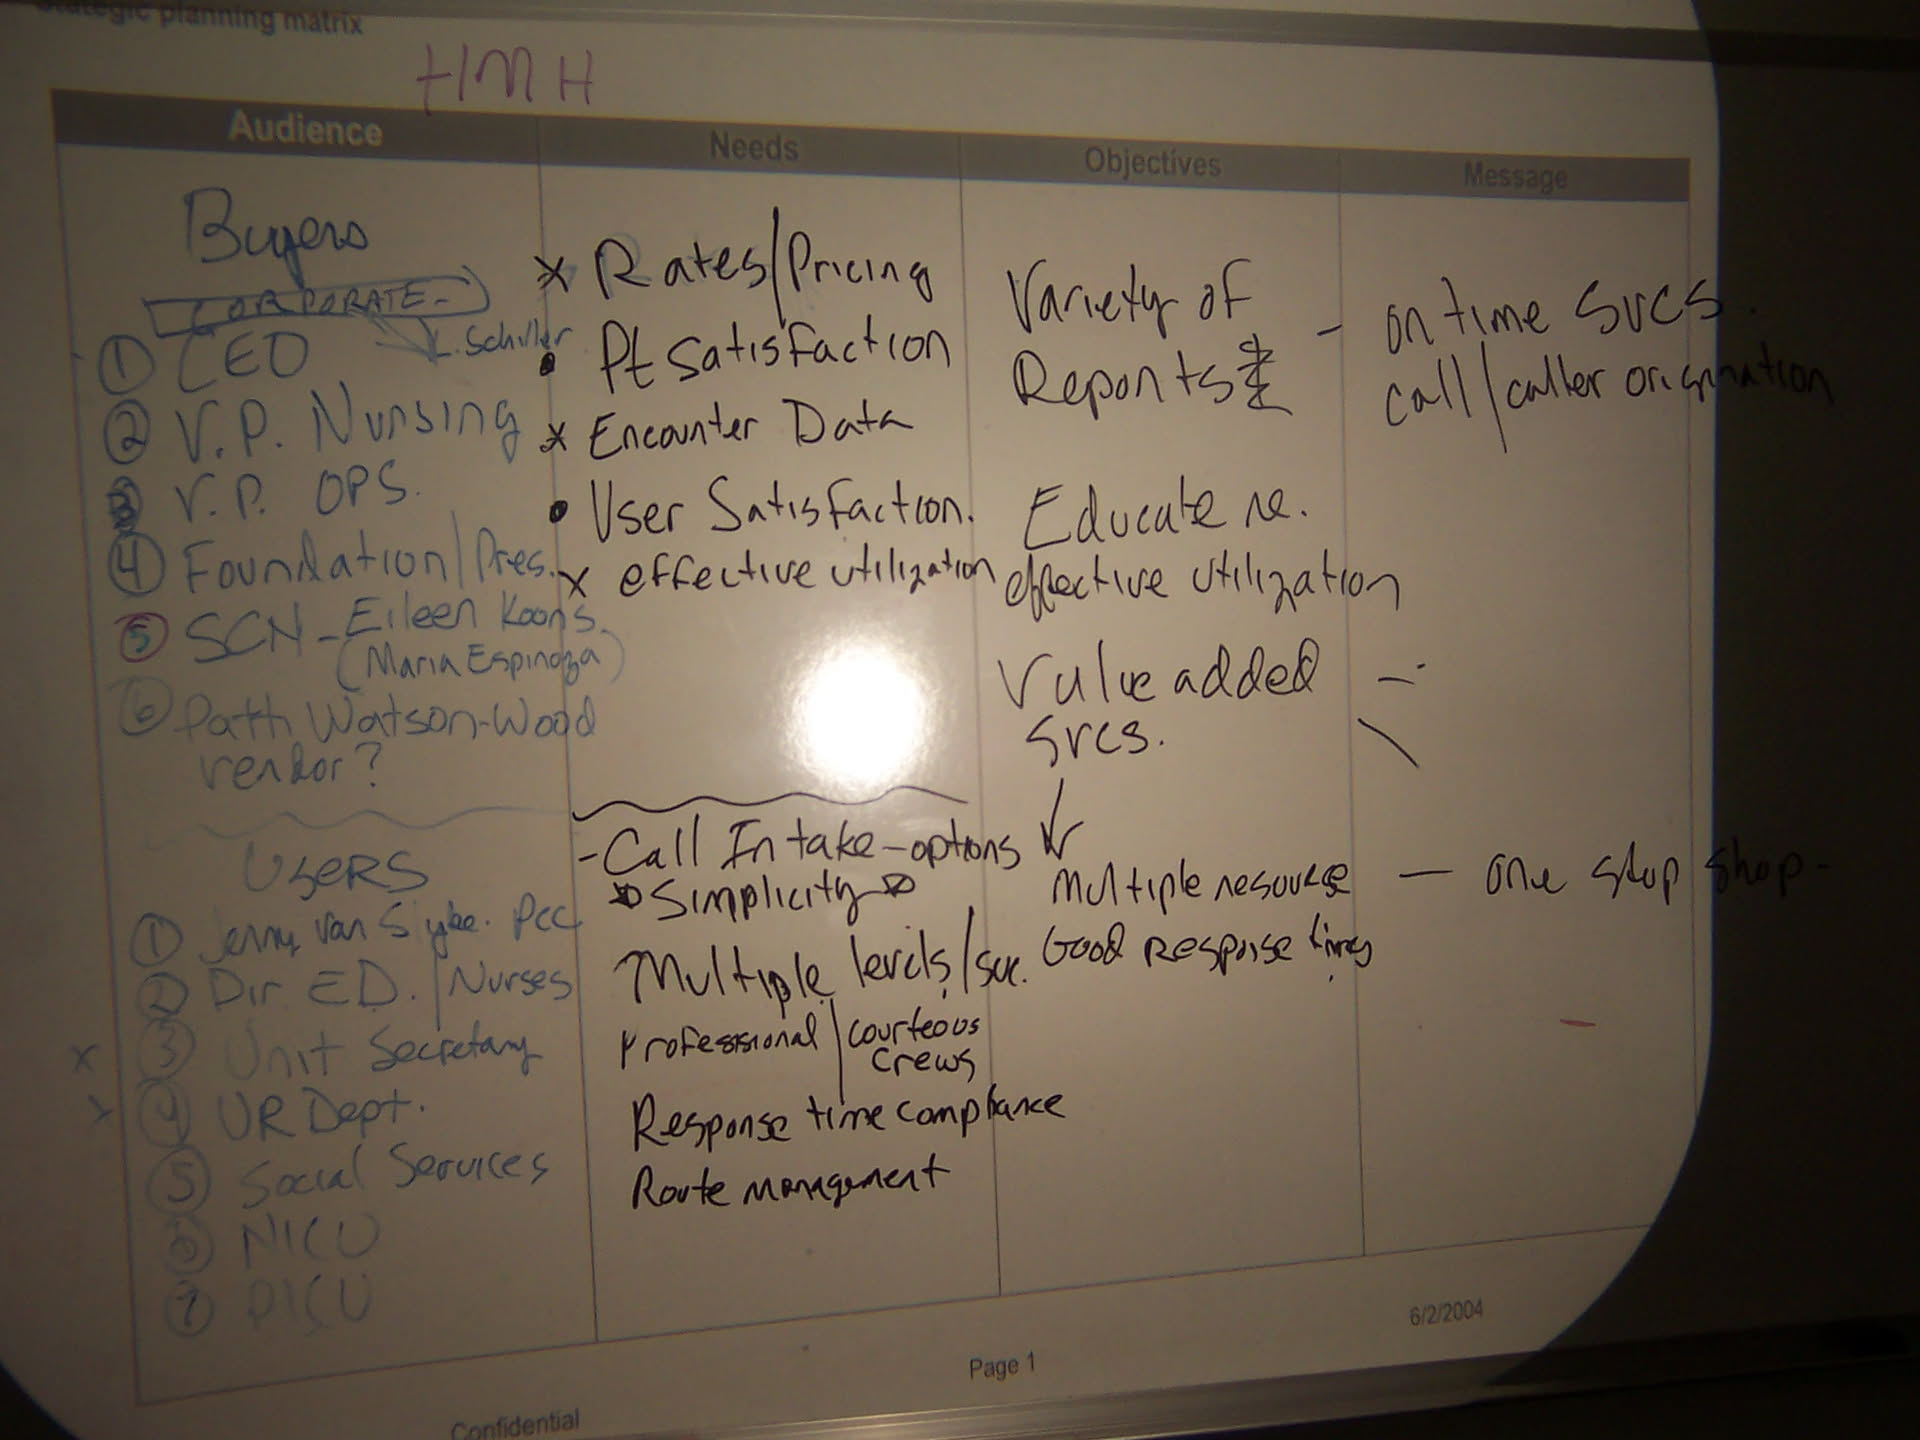 Strategic planning matrix
HMH
Audience
Needs
Objectives
Message
Buyers
CORPORATE-
L. Schiller
① CEO
② V.P. Nursing
③ V.P. OPS.
④ Foundation/Pres.
⑤ SCN - Eileen Koons.
(Maria Espinoza)
⑥ Patti Watson-Wood
vendor?
USERS
① Jenny Van Slyke. PCC
② Dir. ED. / Nurses
x ③ Unit Secretary
x ④ UR Dept.
⑤ Social Services
⑥ NICU
⑦ PICU
x Rates/Pricing
• Pt Satisfaction
x Encounter Data
• User Satisfaction.
x effective utilization
- Call Intake - options
Simplicity
Multiple levels/svc.
Professional / courteous
crews
Response time compliance
Route management
Variety of
Reports
Educate re.
effective utilization
Value added
srcs.
Multiple resource
Good Response times
- on time svcs.
call/caller origination
— one stop shop -
6/2/2004
Page 1
Confidential